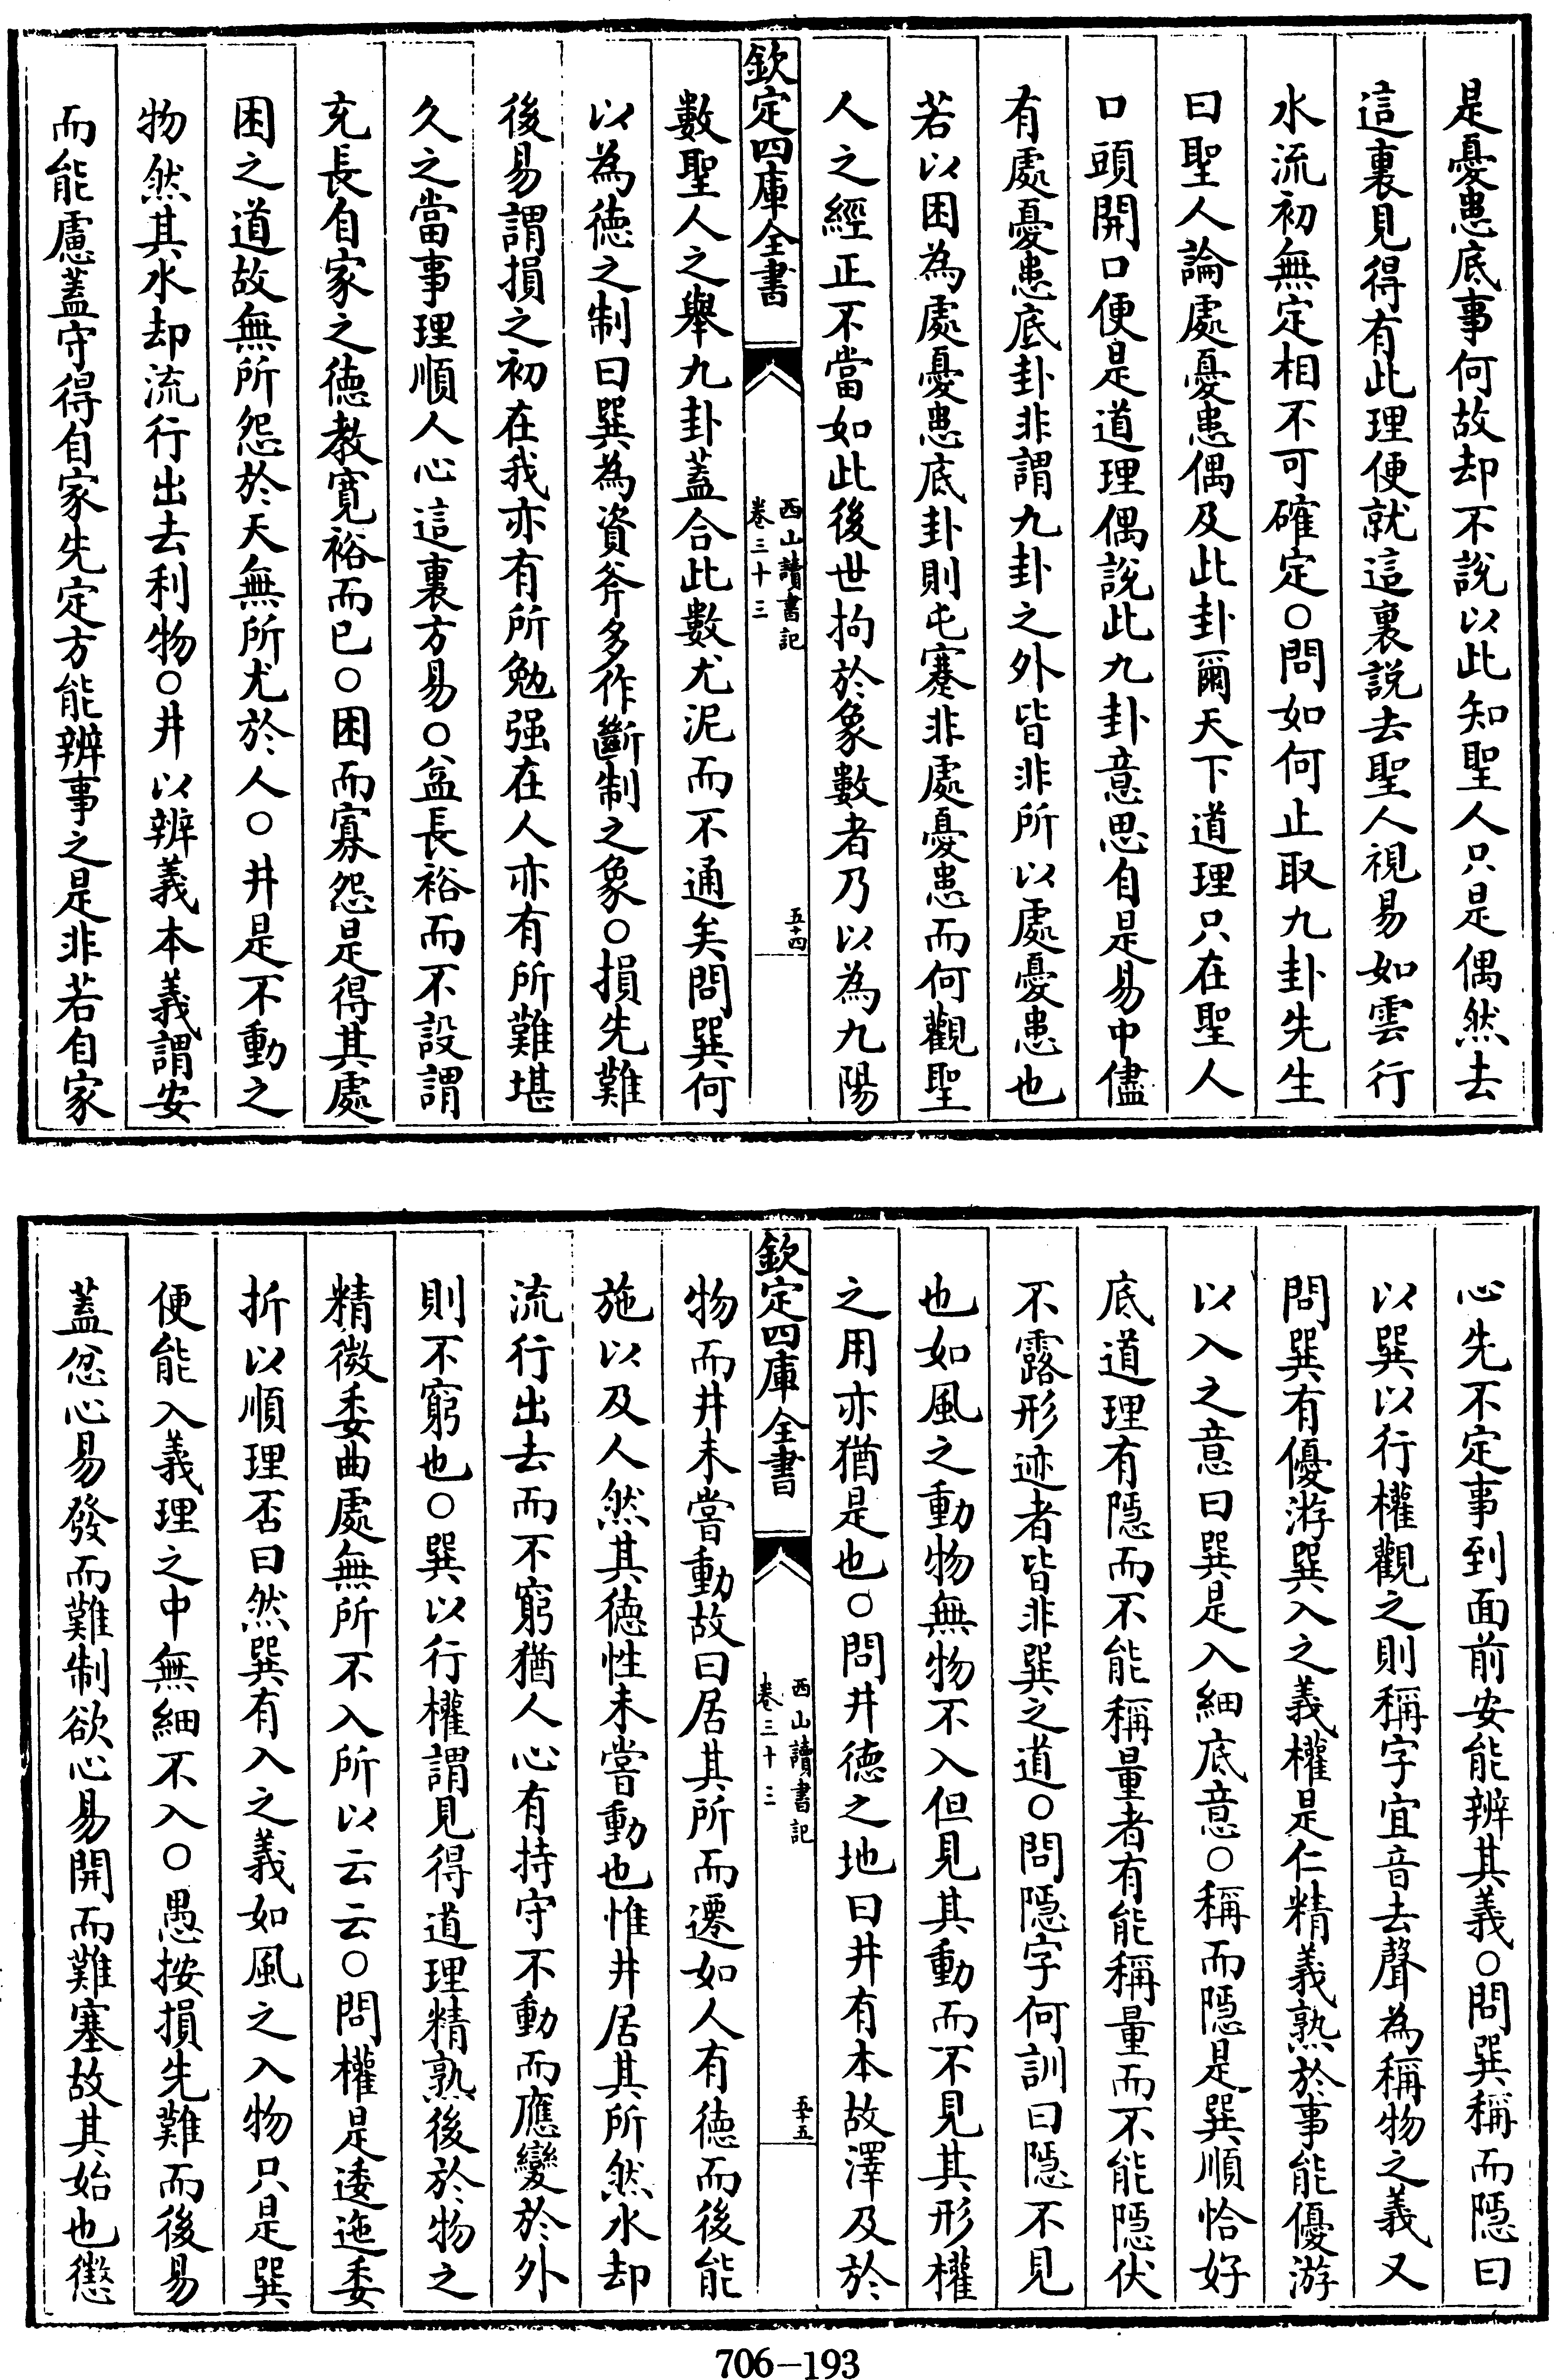 是憂患底事何故却不說以此知聖人只是偶然去
這裏見得有此理便就這裏説去聖人視易如雲行
水流初無定相不可確定○問如何止取九卦先生
曰聖人論處憂患偶及此卦爾天下道理只在聖人
口頭開口便是道理偶說此九卦意思自是易中儘
有處憂患底卦非謂九卦之外皆非所以處憂患也
若以困為處憂患底卦則屯蹇非處憂患而何觀聖
人之經正不當如此後世拘於象數者乃以為九陽
欽定四庫全書
西山讀書記
卷三十三
五十四
數聖人之舉九卦蓋合此數尤泥而不通矣問巽何
以為徳之制曰巽為資斧多作斷制之象○損先難
後易謂損之初在我亦有所勉强在人亦有所難堪
久之當事理順人心這裏方易○益長裕而不設謂
充長自家之徳教寛裕而已○困而寡怨是得其處
困之道故無所怨於天無所尤於人○井是不動之
物然其水却流行出去利物○井以辨義本義謂安
而能慮蓋守得自家先定方能辨事之是非若自家
心先不定事到面前安能辨其義○問巽稱而隱曰
以巽以行權觀之則稱字宜音去聲為稱物之義又
問巽有優游巽入之義權是仁精義熟於事能優游
以入之意曰巽是入細底意○稱而隱是巽順恰好
底道理有隱而不能稱量者有能稱量而不能隱伏
不露形迹者皆非巽之道○問隱字何訓曰隱不見
也如風之動物無物不入但見其動而不見其形權
之用亦猶是也○問井徳之地曰井有本故澤及於
欽定四庫全書
西山讀書記
卷三十三
五十五
物而井未嘗動故曰居其所而遷如人有徳而後能
施以及人然其徳性未嘗動也惟井居其所然水却
流行出去而不窮猶人心有持守不動而應變於外
則不窮也○巽以行權謂見得道理精熟後於物之
精微委曲處無所不入所以云云○問權是逶迤委
折以順理否曰然巽有入之義如風之入物只是巽
便能入義理之中無細不入○愚按損先難而後易
蓋忿心易發而難制欲心易開而難塞故其始也懲
706-193